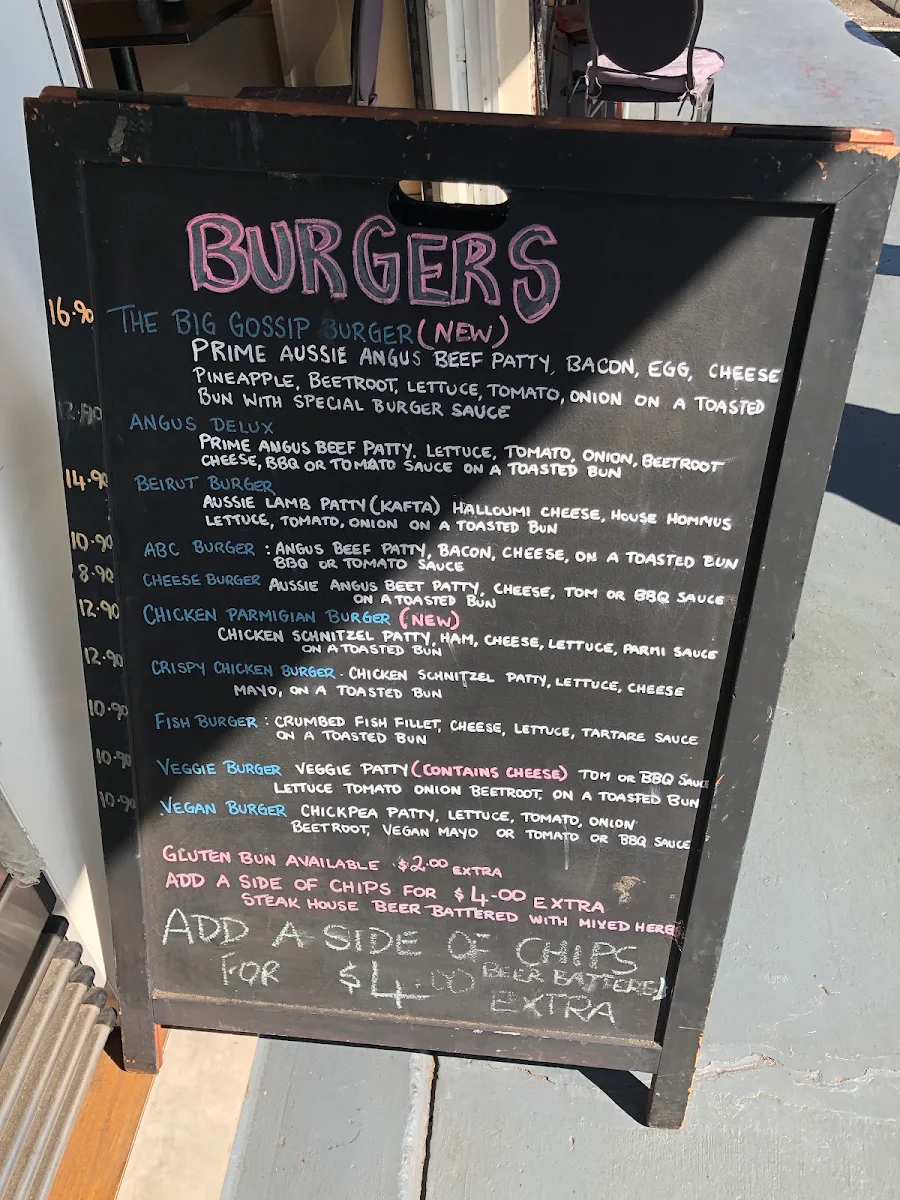 BURGERS
16.90 THE BIG GOSSIP BURGER (NEW)
PRIME AUSSIE ANGUS BEEF PATTY, BACON, EGG, CHEESE
PINEAPPLE, BEETROOT, LETTUCE, TOMATO, ONION ON A TOASTED
BUN WITH SPECIAL BURGER SAUCE
ANGUS DELUX
PRIME ANGUS BEEF PATTY, LETTUCE, TOMATO, ONION, BEETROOT
CHEESE, BBQ OR TOMATO SAUCE ON A TOASTED BUN
14.90 BEIRUT BURGER
AUSSIE LAMB PATTY (KAFTA) HALLOUMI CHEESE, HOUSE HOMMUS
LETTUCE, TOMATO, ONION ON A TOASTED BUN
10.90 ABC BURGER : ANGUS BEEF PATTY, BACON, CHEESE, ON A TOASTED BUN
BBQ OR TOMATO SAUCE
8.90 CHEESE BURGER AUSSIE ANGUS BEET PATTY, CHEESE, TOM OR BBQ SAUCE
ON A TOASTED BUN
12.90 CHICKEN PARMIGIAN BURGER (NEW)
CHICKEN SCHNITZEL PATTY, HAM, CHEESE, LETTUCE, PARMI SAUCE
ON A TOASTED BUN
12.90 CRISPY CHICKEN BURGER . CHICKEN SCHNITZEL PATTY, LETTUCE, CHEESE
MAYO, ON A TOASTED BUN
10.90 FISH BURGER : CRUMBED FISH FILLET, CHEESE, LETTUCE, TARTARE SAUCE
ON A TOASTED BUN
10.90 VEGGIE BURGER VEGGIE PATTY (CONTAINS CHEESE) TOM OR BBQ SAUCE
LETTUCE TOMATO ONION BEETROOT, ON A TOASTED BUN
10.90 VEGAN BURGER CHICKPEA PATTY, LETTUCE, TOMATO, ONION
BEETROOT, VEGAN MAYO OR TOMATO OR BBQ SAUCE
GLUTEN BUN AVAILABLE $2.00 EXTRA
ADD A SIDE OF CHIPS FOR $4.00 EXTRA
STEAK HOUSE BEER BATTERED WITH MIXED HERBS
ADD A SIDE OF CHIPS
FOR $4.00 BEER BATTERED
EXTRA